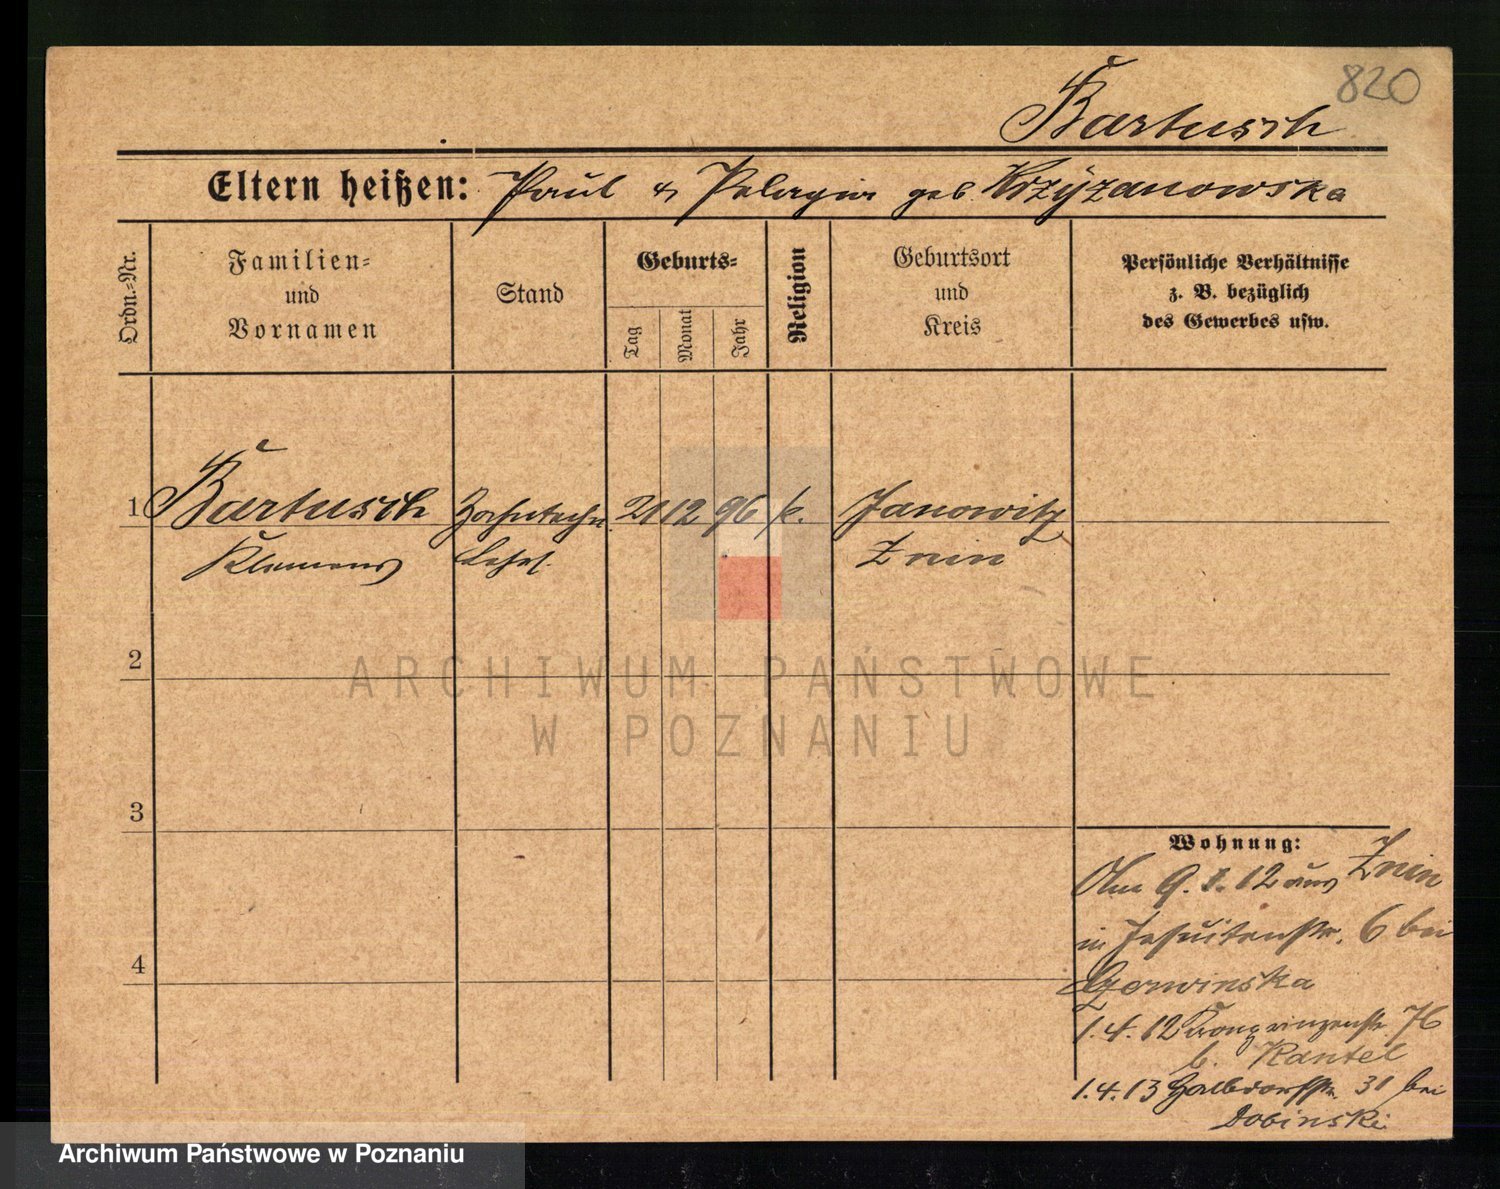 820
Bartusch
Eltern heißen: Paul & Pelagia geb. Krzyzanowska
Ordn.-Nr.
Familien-
und
Vornamen
Stand
Geburts-
Tag
Monat
Jahr
Religion
Geburtsort
und
Kreis
Persönliche Verhältnisse
z. B. bezüglich
des Gewerbes usw.
1 Bartusch Zahntechn. 21 12 96 k. Janowitz
Klemens Lehrl. Znin
2
3
4
Wohnung:
Am 9. 1. 12 aus Znin
in Jesuitenstr. 6 bei
1.4.12 Kronprinzenstr. 76
b. Kantel
1.4.13 Halbdorfstr. 31 bei
Dobinski
ARCHIWUM PAŃSTWOWE
W POZNANIU
Archiwum Państwowe w Poznaniu